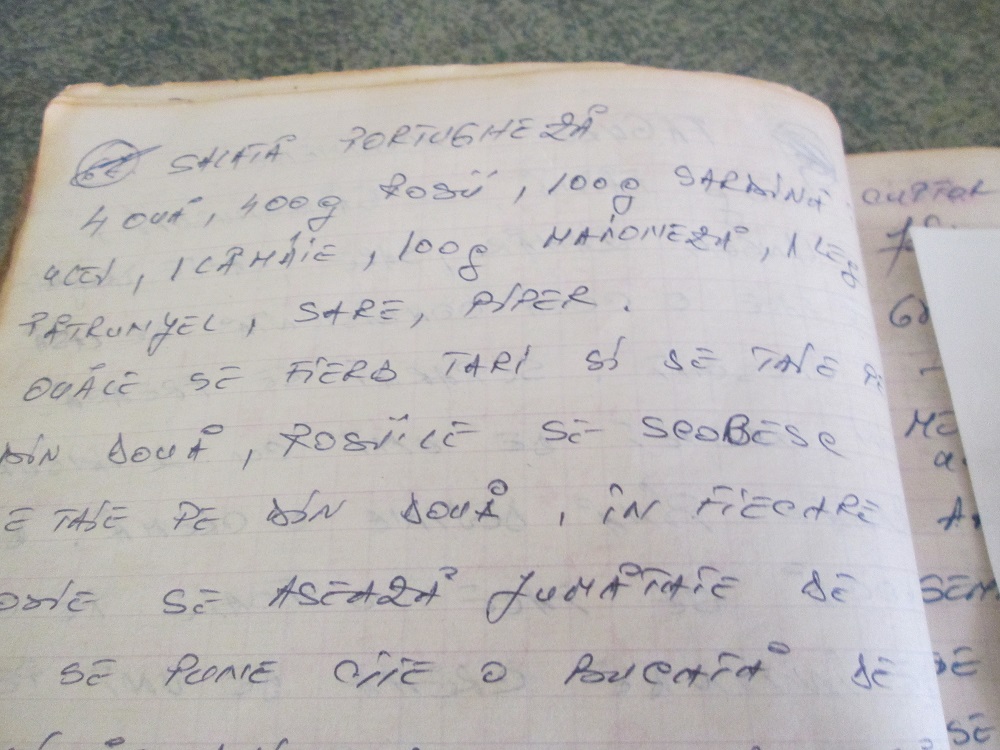 SALATĂ PORTUGHEZĂ
4 OUĂ, 400g ROSII, 100g SARDINĂ
ULEI, 1 LĂMÎIE, 100g MAIONEZĂ, 1 LEG
PĂTRUNJEL, SARE, PIPER.
OUĂLE SE FIERB TARI SI SE TAIE PE
DIN DOUĂ, ROSIILE SE SCOBESC
E TAIE PE DIN DOUĂ, ÎN FIECARE
OSIE SE ASEAZĂ JUMĂTATE DE
SE PUNE CITE O BUCATĂ DE
CUPTOR
SEM
DE
SE